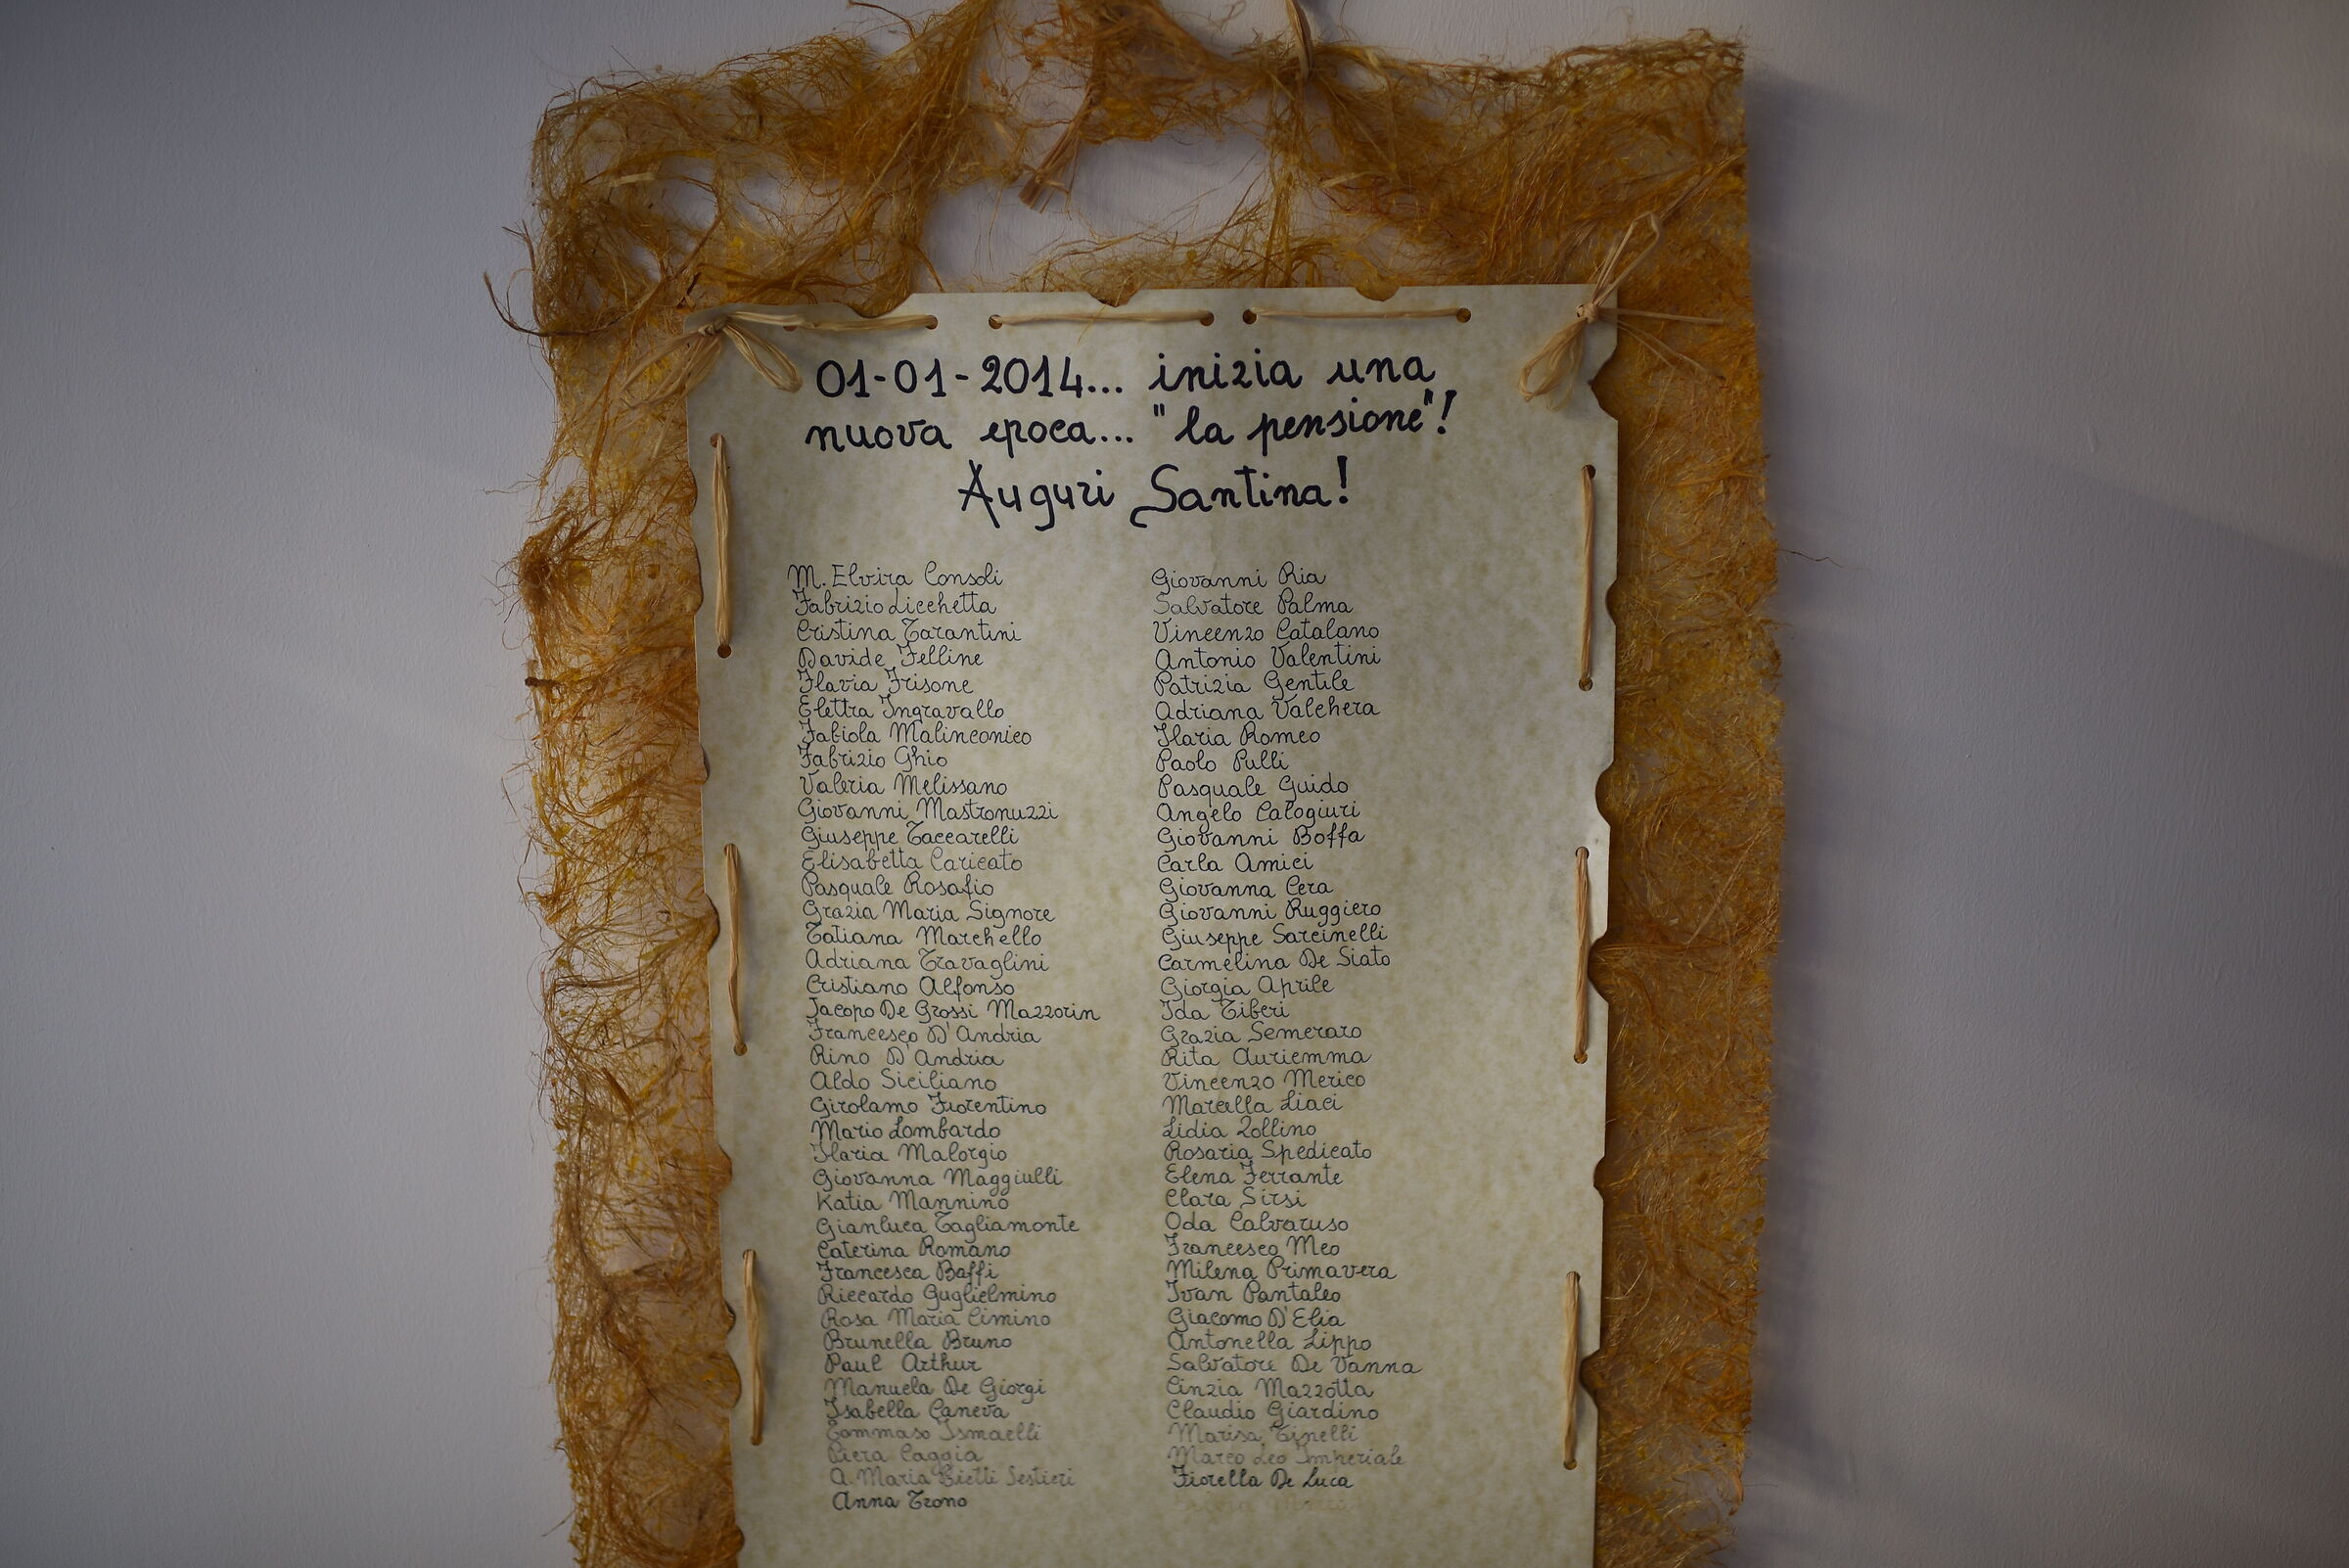 01-01-2014... inizia una
nuova epoca... "la pensione"!
Auguri Santina!
M. Elvira Consoli
Fabrizio Licchetta
Cristina Tarantini
Davide Felline
Flavia Frisone
Elettra Ingravallo
Fabiola Malinconico
Fabrizio Ghio
Valeria Melissano
Giovanni Mastronuzzi
Giuseppe Taccarelli
Elisabetta Caricato
Pasquale Rosafio
Grazia Maria Signore
Tatiana Marchello
Adriana Travaglini
Cristiano Alfonso
Jacopo De Grossi Mazzorin
Francesco D'Andria
Rino D'Andria
Aldo Siciliano
Girolamo Fiorentino
Mario Lombardo
Ilaria Malorgio
Giovanna Maggiulli
Katia Mannino
Gianluca Tagliamonte
Caterina Romano
Francesca Baffi
Riccardo Guglielmino
Rosa Maria Cimino
Brunella Bruno
Paul Arthur
Manuela De Giorgi
Isabella Caneva
Tommaso Ismaelli
Piera Caggia
A. Maria Bietti Sestieri
Anna Trono
Giovanni Ria
Salvatore Palma
Vincenzo Catalano
Antonio Valentini
Patrizia Gentile
Adriana Valchera
Ilaria Romeo
Paolo Pulli
Pasquale Guido
Angelo Calogiuri
Giovanni Boffa
Carla Amici
Giovanna Cera
Giovanni Ruggiero
Giuseppe Sarcinelli
Carmelina De Siato
Giorgia Aprile
Ida Tiberi
Grazia Semeraro
Rita Auriemma
Vincenzo Merico
Marcella Liaci
Lidia Zollino
Rosaria Spedicato
Elena Ferrante
Clara Sirsi
Oda Calvaruso
Francesco Meo
Milena Primavera
Ivan Pantaleo
Giacomo D'Elia
Antonella Lippo
Salvatore De Vanna
Cinzia Mazzotta
Claudio Giardino
Marisa Tinelli
Marco Leo Imperiale
Fiorella De Luca